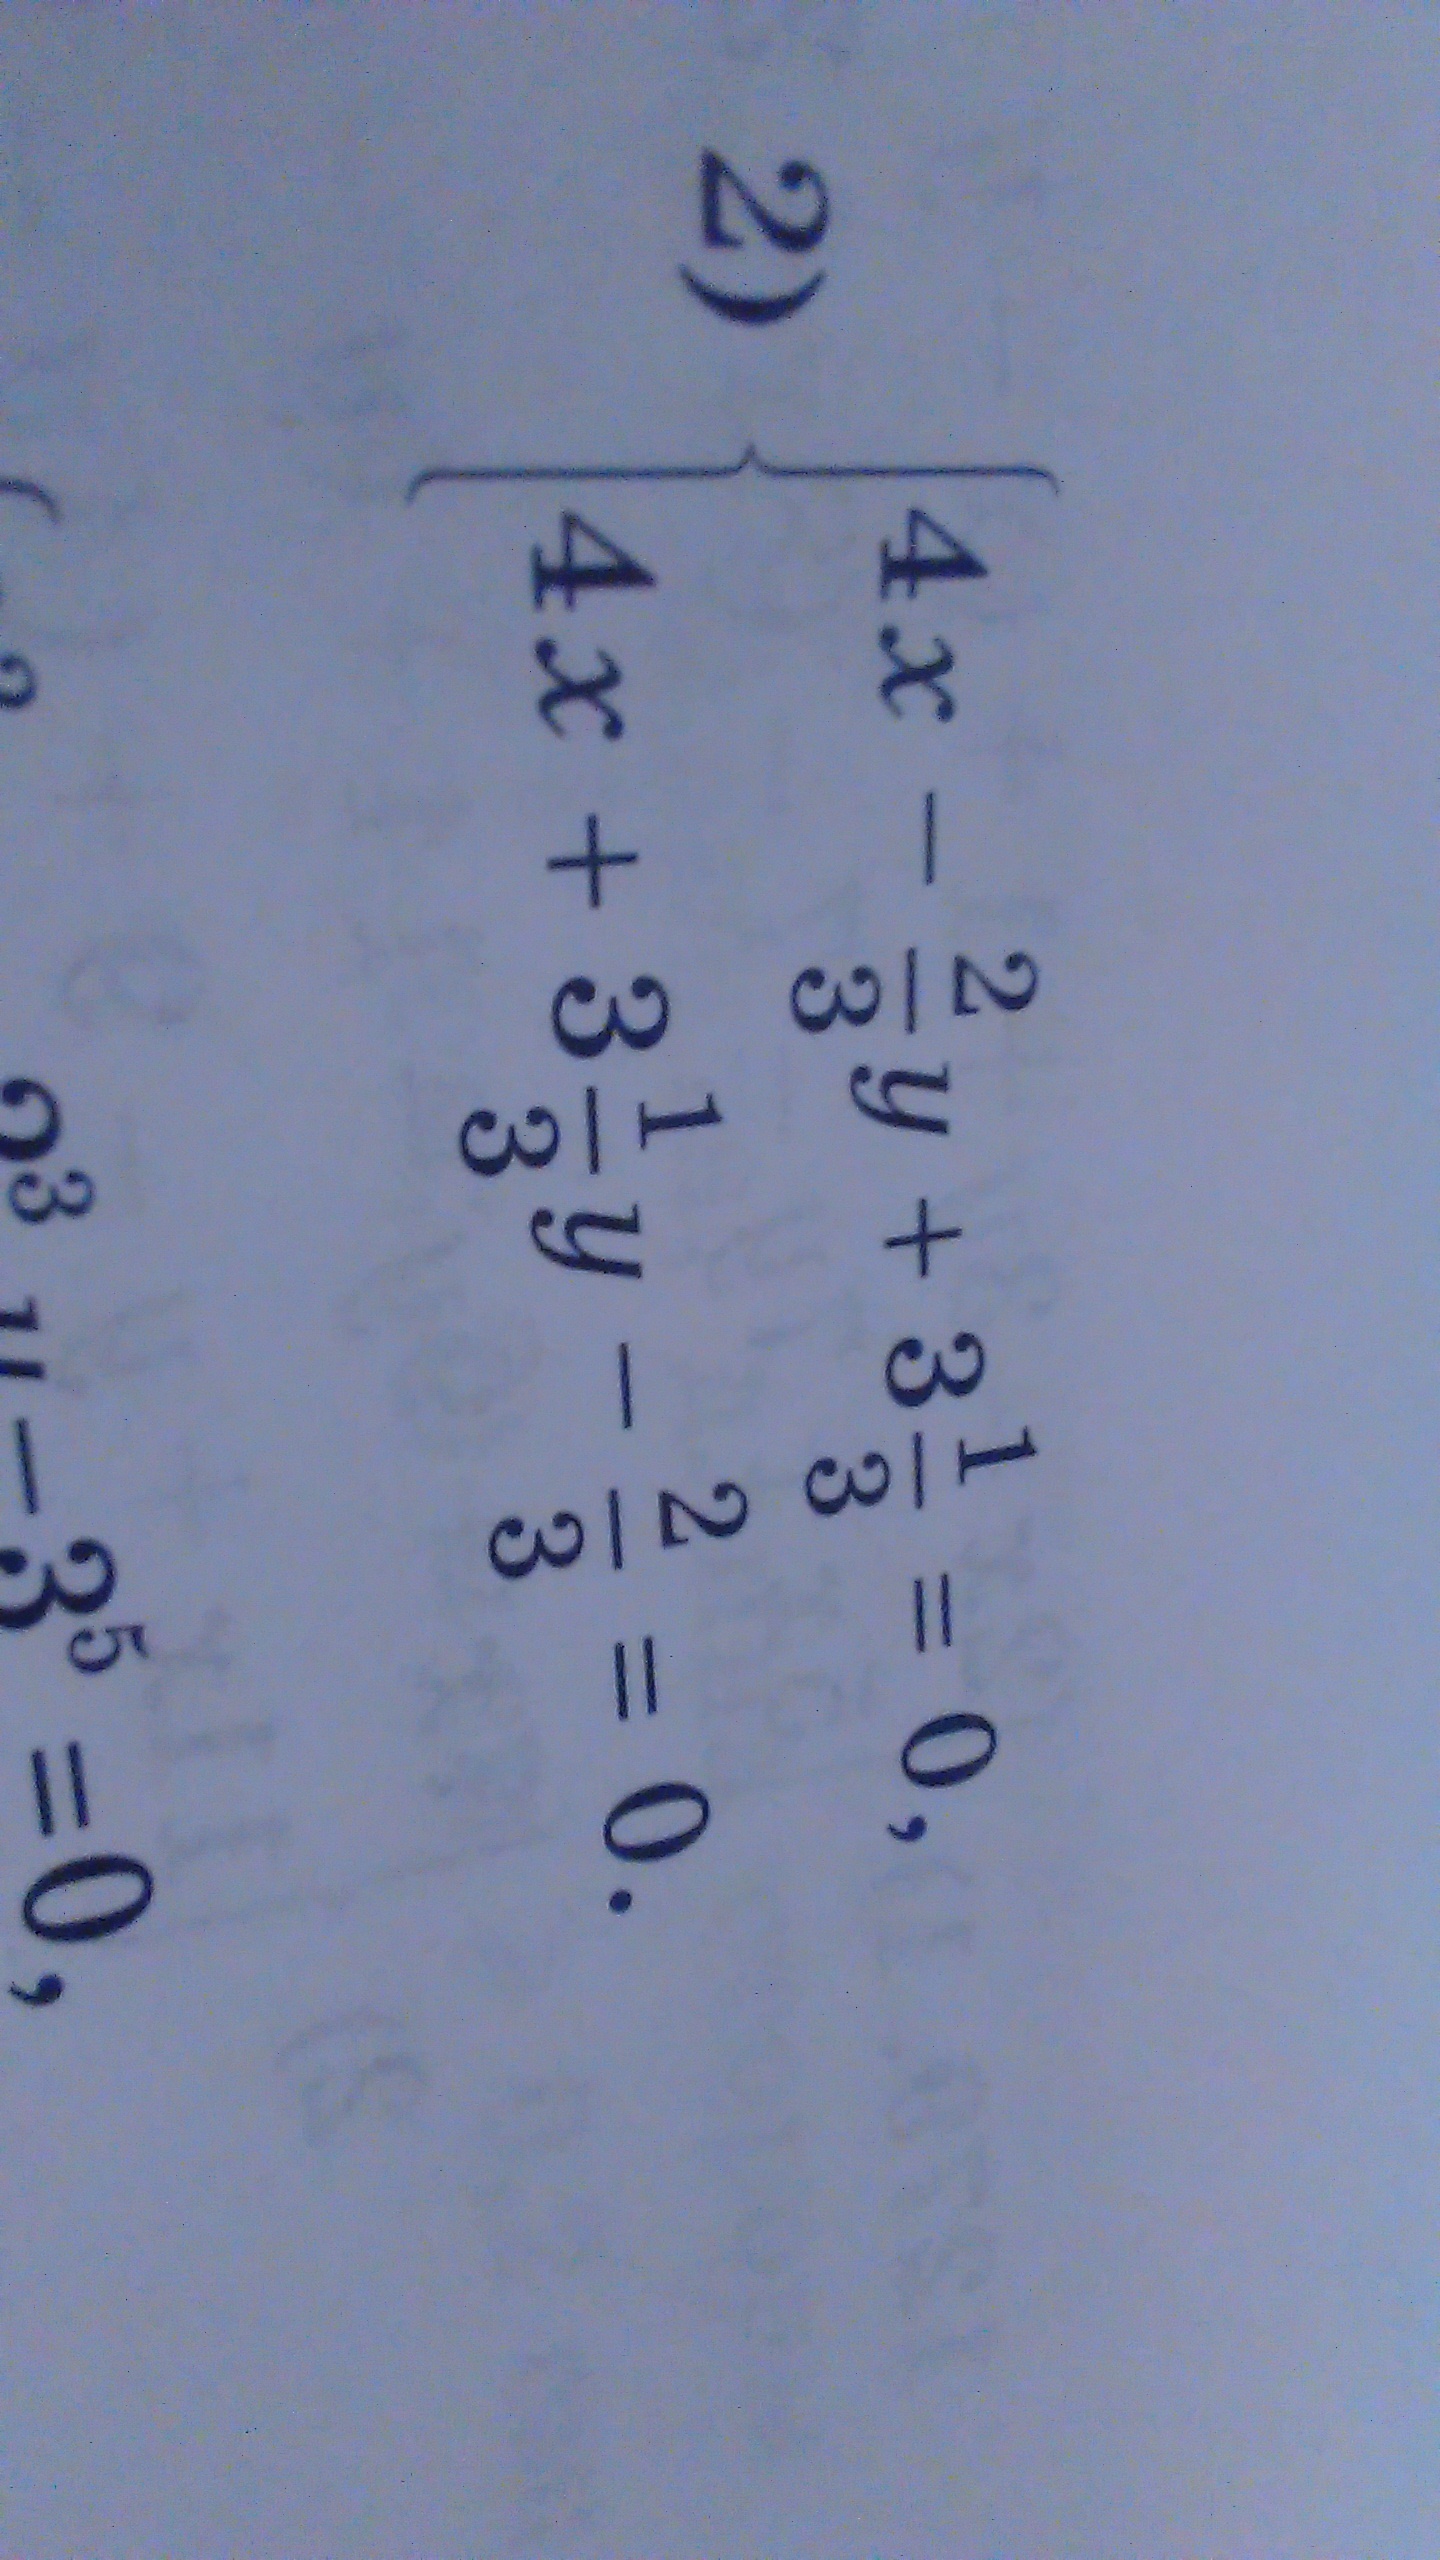 2) { 4x − 2/3 y + 3 1/3 = 0,
4x + 3 1/3 y − 2/3 = 0.
= 0,